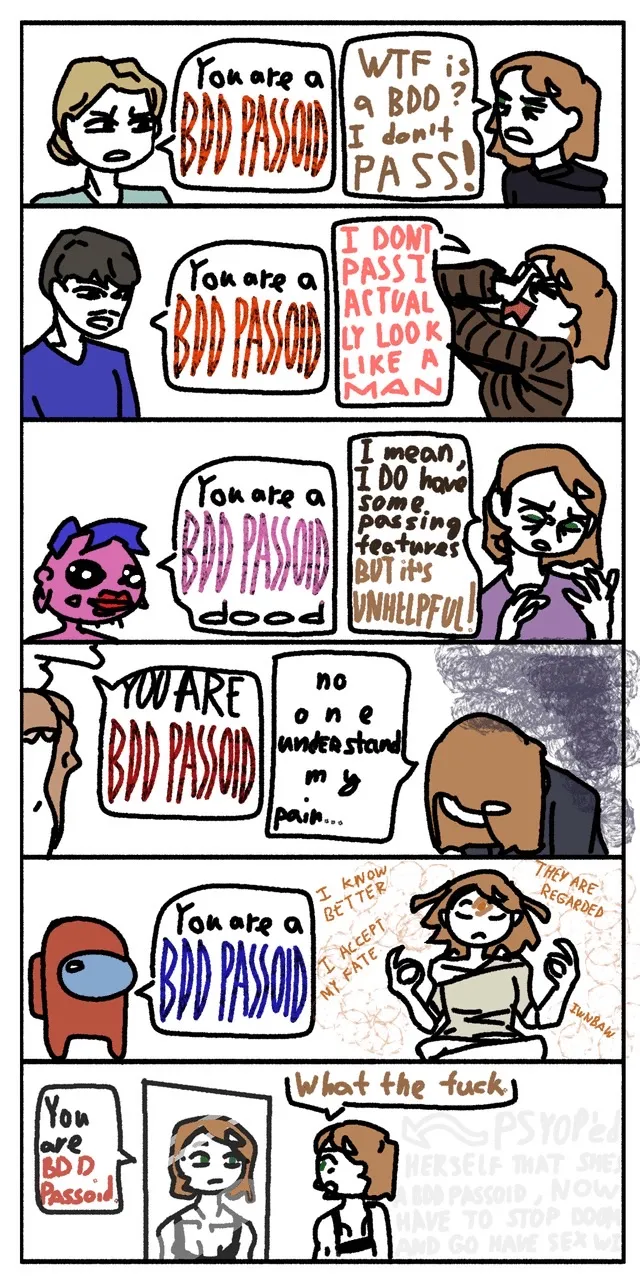 You are a
BDD PASSOID
WTF is
a BDD?
I don't
PASS!
You are a
BDD PASSOID
I DONT
PASS I
ACTUAL
LY LOOK
LIKE A
MAN
You are a
BDD PASSOID
dood
I mean,
I DO have
some
passing
features
BUT it's
UNHELPFUL!
YOU ARE
BDD PASSOID
no
one
understand
my
pain...
You are a
BDD PASSOID
I KNOW
BETTER
I ACCEPT
MY FATE
THEY ARE
REGARDED
IWNBAW
You
are
BDD
Passoid.
What the fuck.
PSYOP'ed
HERSELF THAT SHES
A BDD PASSOID, NOW
HAVE TO STOP DOOM
AND GO HAVE SEX WI